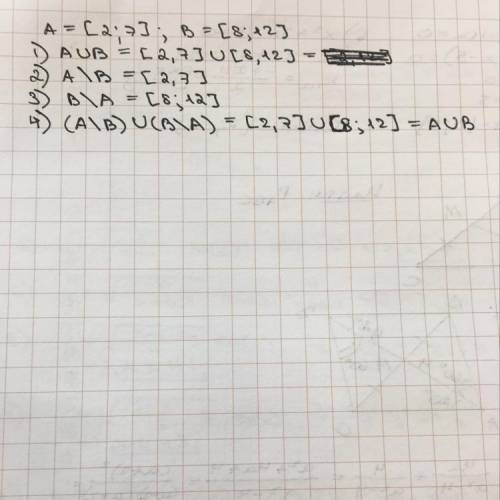 A = [2;7]; B = [8;12]
1) A∪B = [2,7]∪[8,12] =
2) A\B = [2,7]
3) B\A = [8;12]
4) (A\B)∪(B\A) = [2,7]∪[8;12] = A∪B